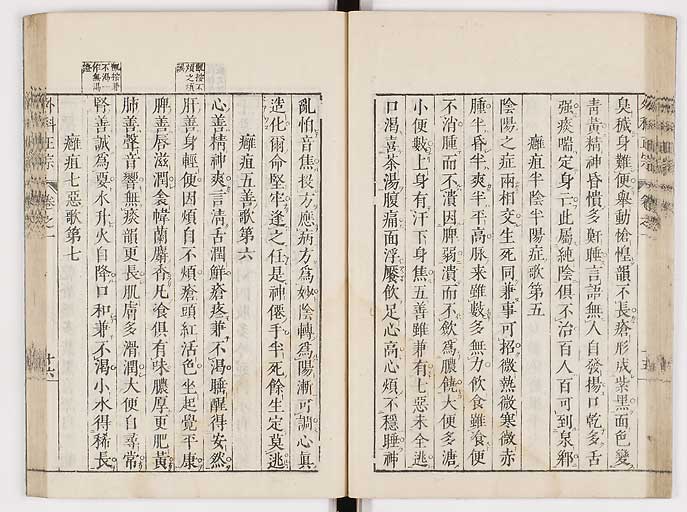 臭穢身難便舉動愴惶韻不長瘡形成紫黑面色變
青黃精神昏憒多鼾睡言語無人自發揚口乾多舌
强痰喘定身亡此屬純陰俱不治百人百可到泉鄉
癰疽半陰半陽症歌第五
陰陽之症兩相交生死同兼事可招微熱微寒微赤
腫半昏半爽半平高脉来雖數多無力飲食雖食便
不消腫而不潰因脾弱潰而不歛為膿饒大便多溏
小便數上身有汗下身焦五善雖兼有七惡未全逃
口渴喜茶湯腹痛面浮饜飲足心高心煩不穩睡神
亂怕音焦投方應病方為妙陰轉為陽漸可調心真
造化爾命堅牢逢之任是神僊手半死餘生定莫逃
癰疽五善歌第六
心善精神爽言清舌潤鮮瘡疼兼不渴睡醒得安然
肝善身輕便因煩自不煩瘡頭紅活色坐起覺平康
脾善唇滋潤衾幃蘭麝香凡食俱有味膿厚更肥黃
肺善聲音響無痰韻更長肌膚多滑潤大便自尋常
腎善誠為要水升火自降口和兼不渴小水得稀長
癰疽七惡歌第七
外科正宗
卷之一
十六